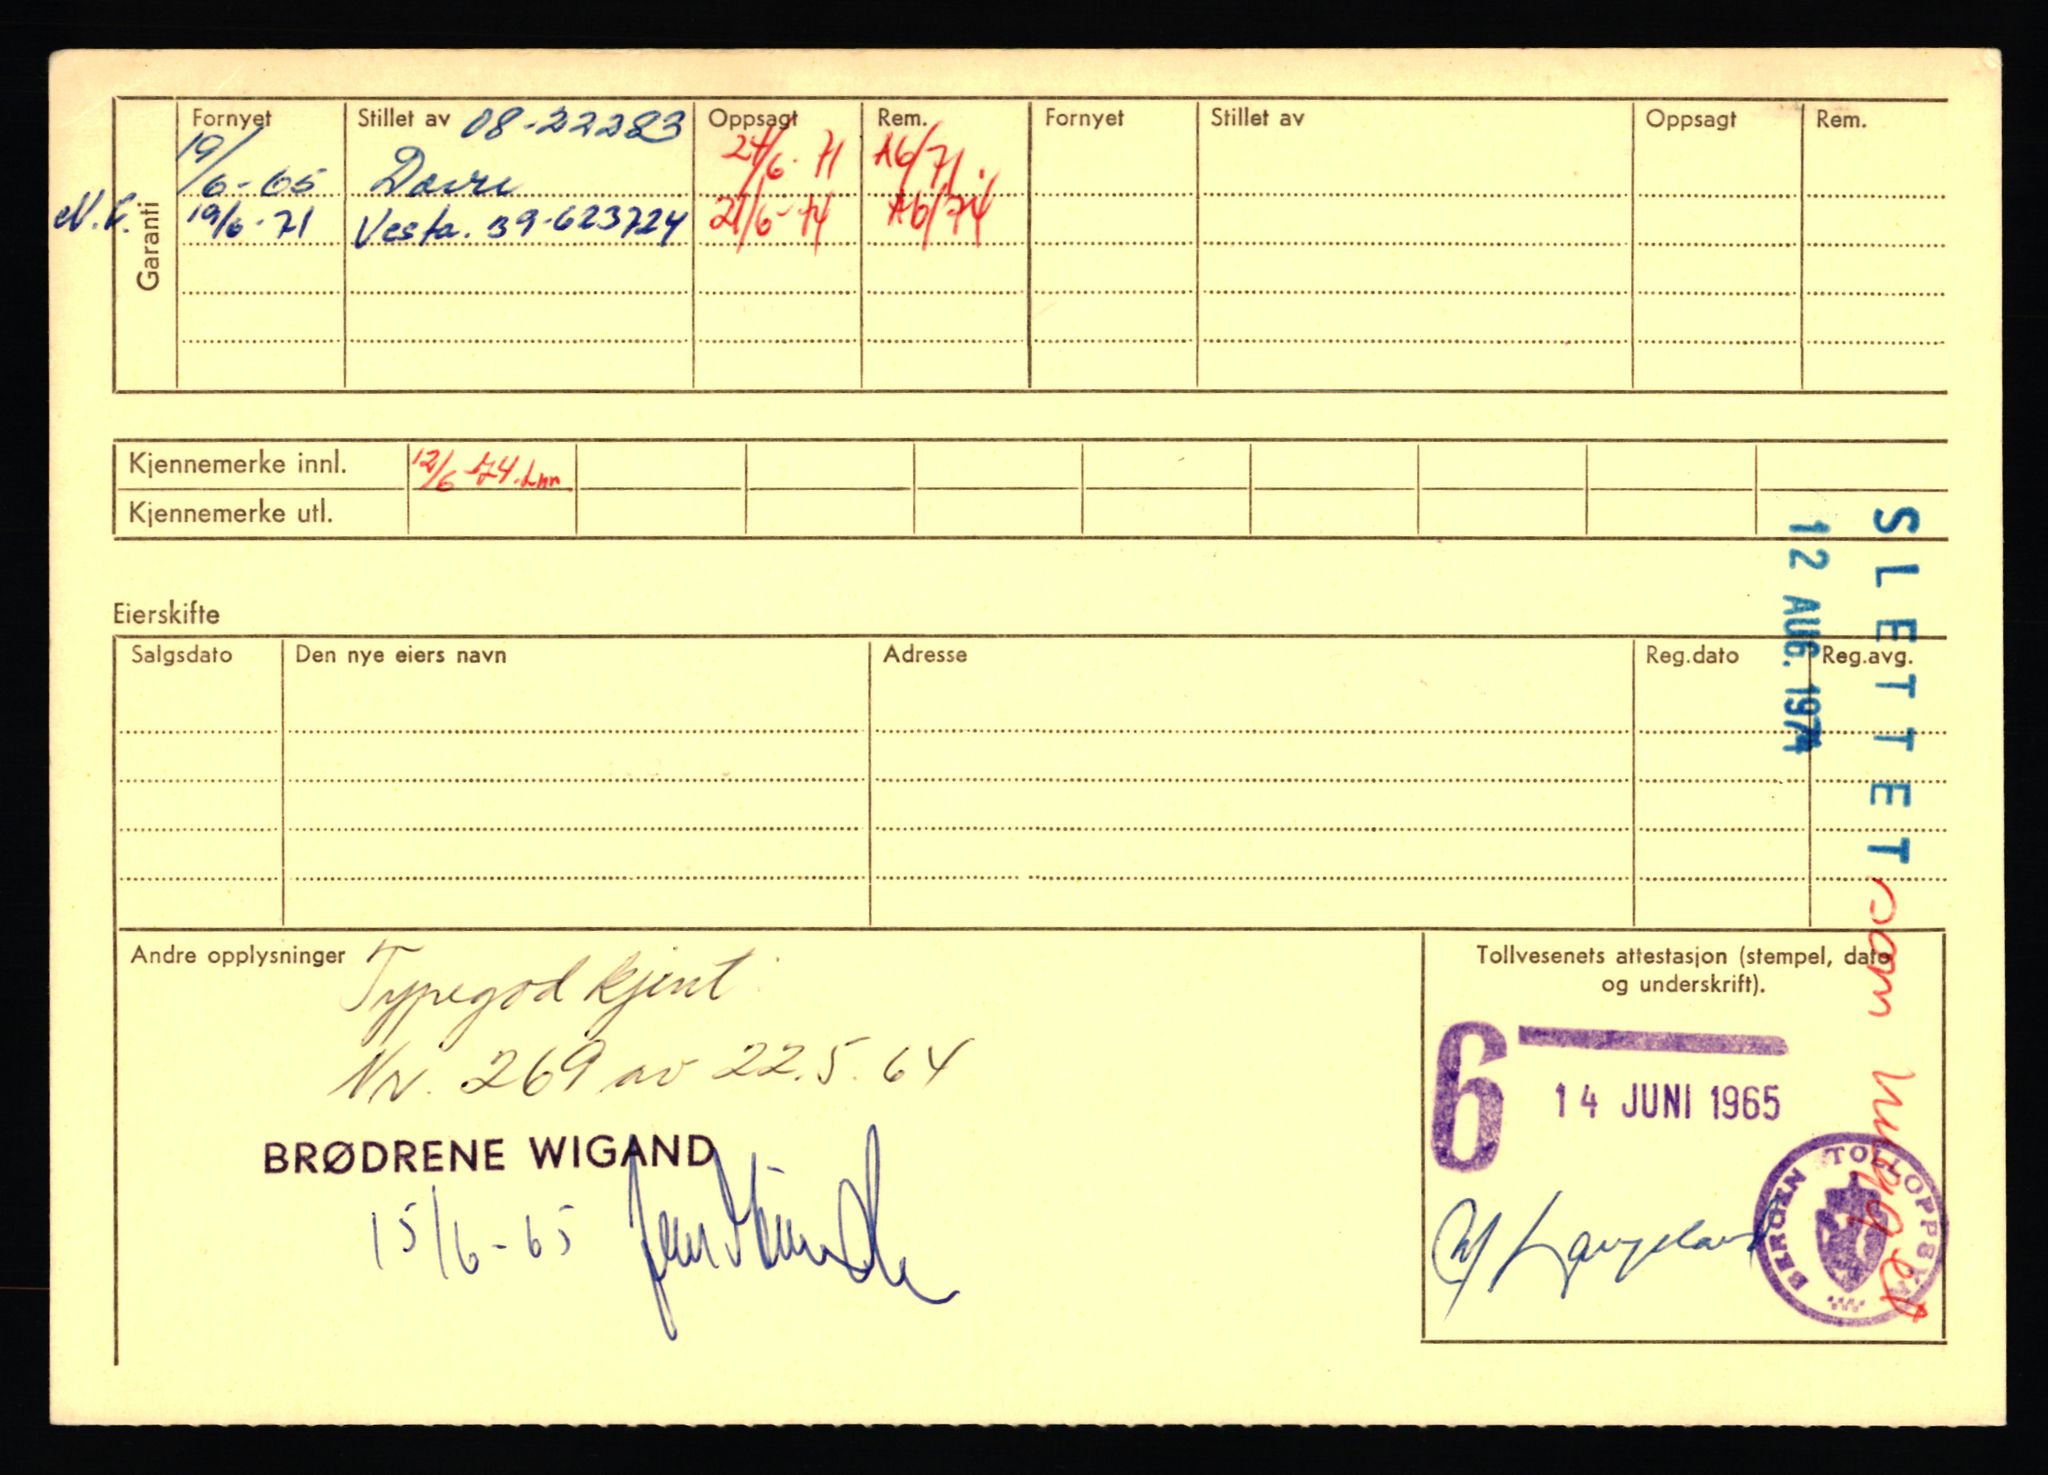 Garanti
Fornyet Stillet av 08-22283 Oppsagt Rem. Fornyet Stillet av Oppsagt Rem.
19/6-65 Dovre 24/6-71 A6/71.
19/6-71 Vesta. 39-623724 21/6-74 A6/74
Kjennemerke innl. 12/6-74.
Kjennemerke utl.
Eierskifte
Salgsdato Den nye eiers navn Adresse Reg.dato Reg.avg.
SLETTET som vraket
12 AUG. 1974
Andre opplysninger Typegodkjent
Nr. 269 av 22.5.64
BRØDRENE WIGAND
15/6-65
Tollvesenets attestasjon (stempel, dato
og underskrift).
6
14 JUNI 1965
BERGEN TOLLOPPSYN